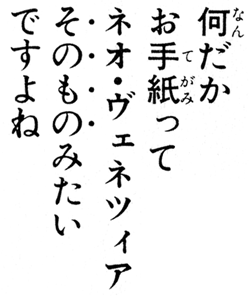 何だか
お手紙って
ネオ・ヴェネツィア
そのものみたい
ですよね